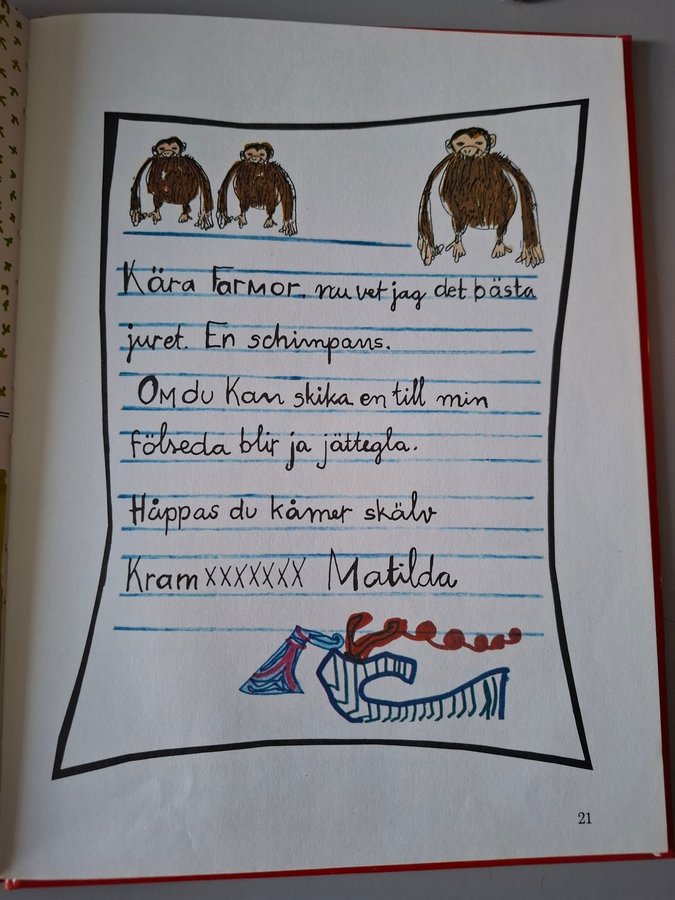 Kära Farmor. nu vet jag det bästa
juret. En schimpans.
Om du kan skika en till min
fölseda blir ja jättegla.
Håppas du kåmer skälv
Kram xxxxxxx Matilda
21